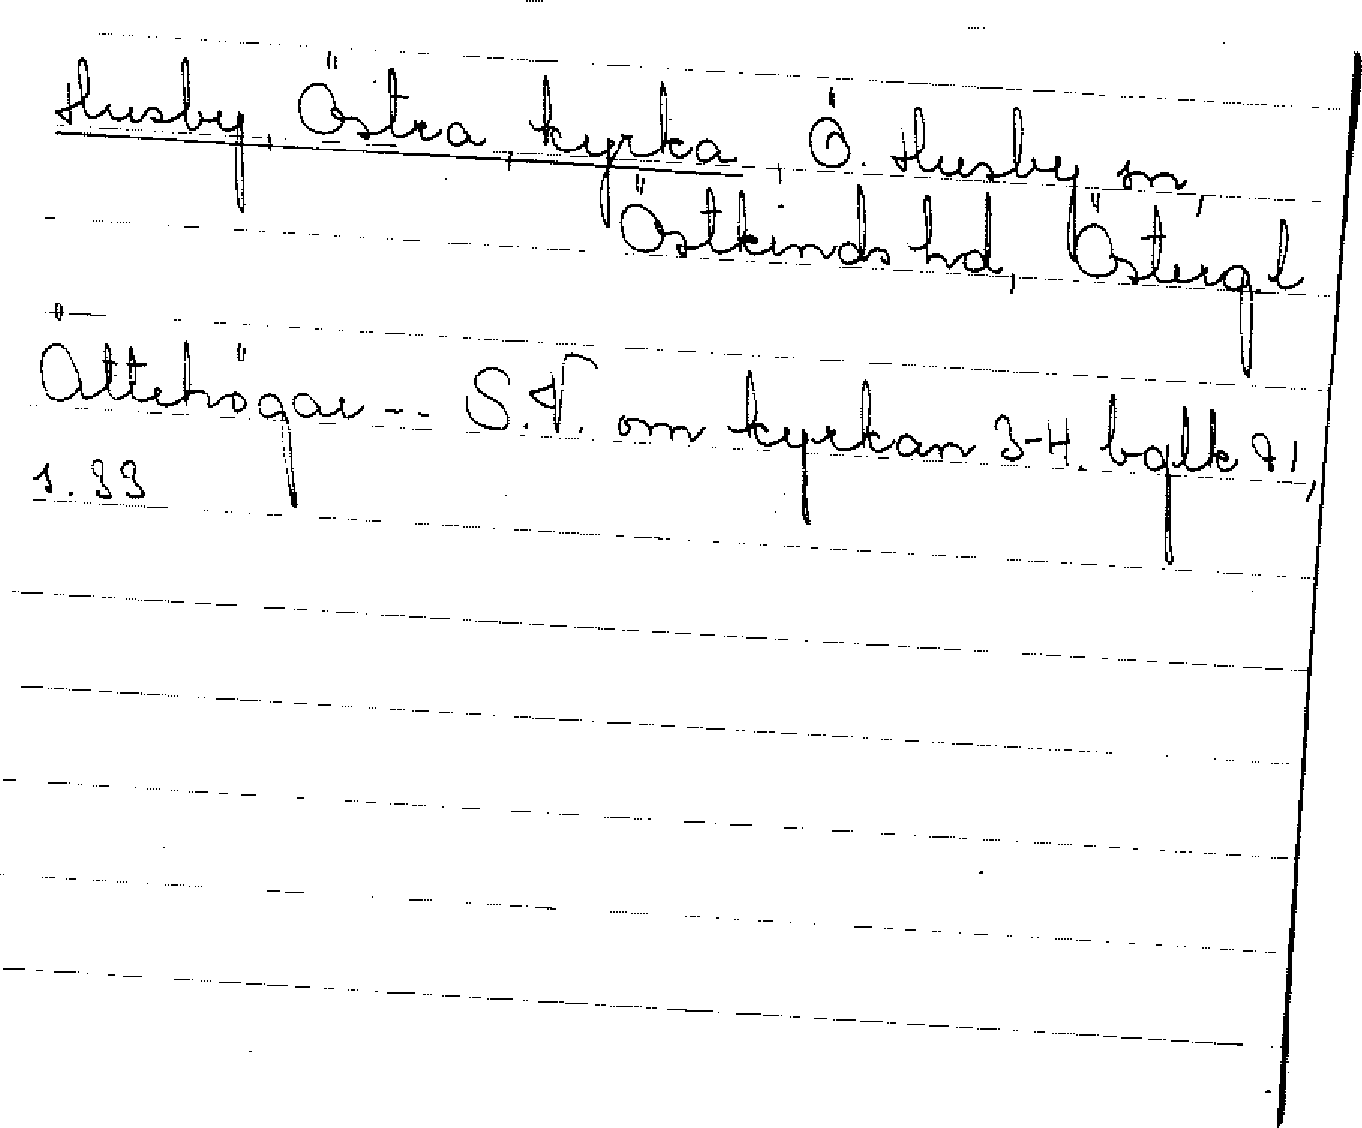 Husby, Östra, kyrka, Ö. Husby sn,
Östkinds hd, Östergl
Ättehögar -- S.V. om kyrkan 3-4. bglk 71,
1.33